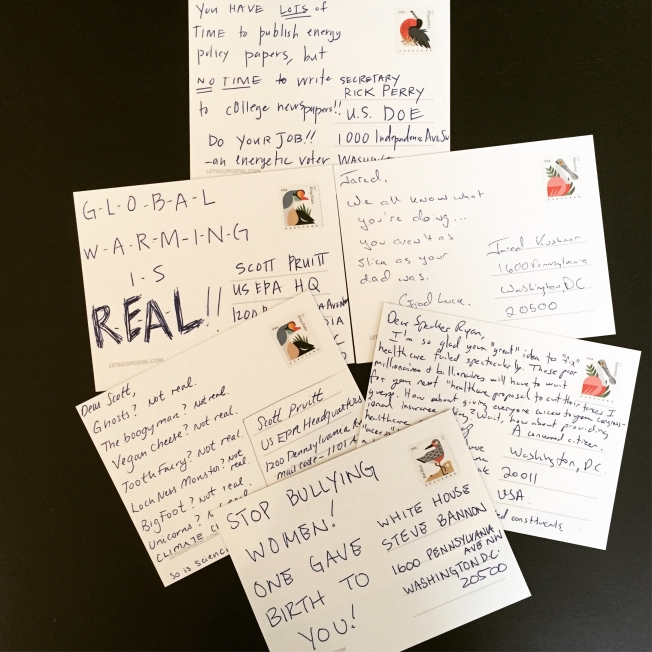 YOU HAVE LOTS of
TIME to publish energy
policy papers, but
NO TIME to write
to college newspapers!!
DO YOUR JOB!!
-an energetic voter
LETSGOPOSTAL.COM
SECRETARY
RICK PERRY
U.S. DOE
1000 Independence Ave SW
G-L-O-B-A-L
W-A-R-M-I-N-G
I-S
R-E-A-L!!
LETSGOPOSTAL.COM
SCOTT PRUITT
US EPA HQ
Jared,
We all know what
you're doing...
you aren't as
slick as your
dad was.
Good Luck.
Jared Kushner
1600 Pennsylvania
Washington, DC
20500
Dear Scott,
Ghosts? Not real.
The boogyman? Not real.
Vegan Cheese? Not real.
Tooth Fairy? Not real.
Loch Ness Monster? Not real.
BigFoot? Not real.
Unicorns? Not real.
CLIMATE
so is
Scott Pruitt
US EPA Headquarters
1200 Pennsylvania
mail code - 1101A
Dear Speaker Ryan,
I'm so glad your "great" idea to "fix"
healthcare failed spectacularly. Those poor
millionaires & billionaires will have to wait
for your next "healthcare proposal to cut their taxes I
guess. How about giving everyone access to your Congress-
ional insurance Wait, how about providing
healthcare
"access"
A concerned citizen.
Washington, D.C.
20011
USA
constituents
STOP BULLYING
WOMEN!
ONE GAVE
BIRTH TO
YOU!
WHITE HOUSE
STEVE BANNON
1600 PENNSYLVANIA
AVE NW
WASHINGTON D.C.
20500